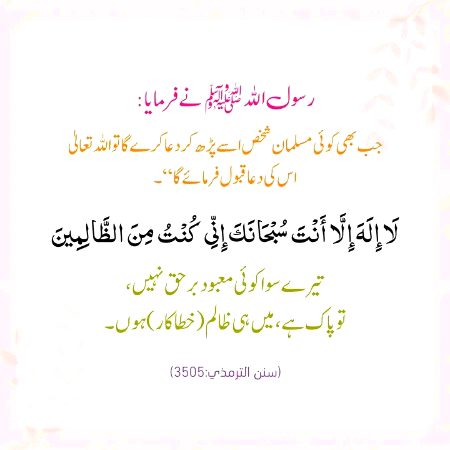 رسول اللہ ﷺ نے فرمایا:
جب بھی کوئی مسلمان شخص اسے پڑھ کر دعا کرے گا تو اللہ تعالیٰ
اس کی دعا قبول فرمائے گا“۔
لَا إِلَهَ إِلَّا أَنْتَ سُبْحَانَكَ إِنِّي كُنْتُ مِنَ الظَّالِمِينَ
تیرے سوا کوئی معبود برحق نہیں،
تو پاک ہے، میں ہی ظالم (خطاکار) ہوں۔
(سنن الترمذي:3505)